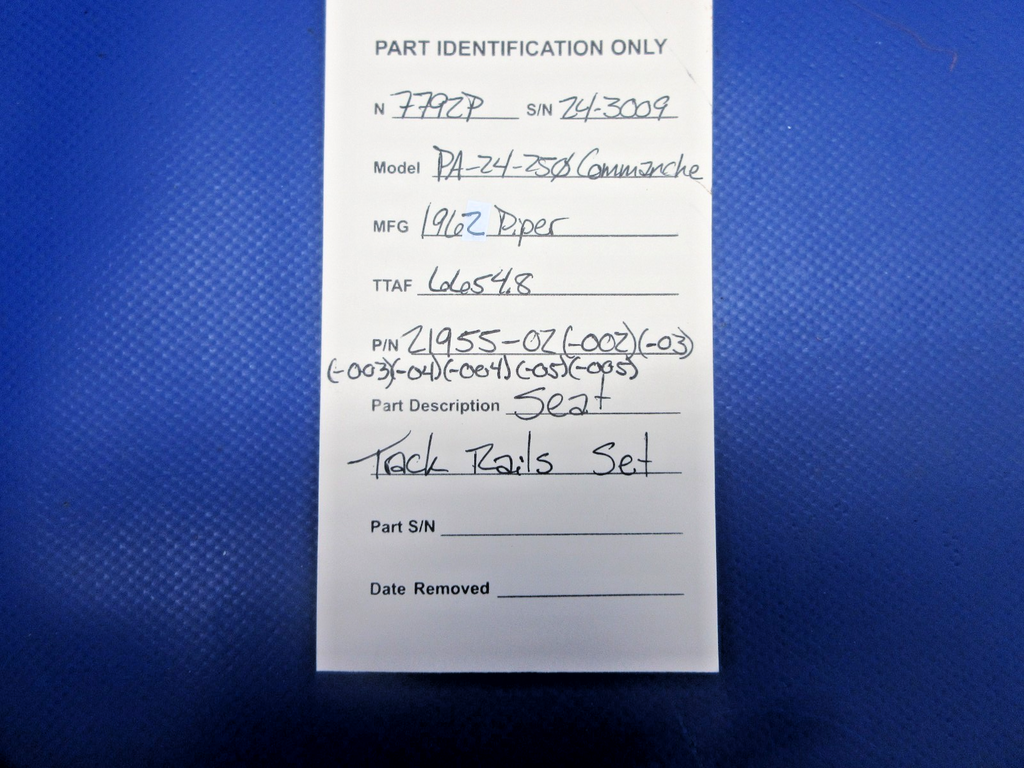 PART IDENTIFICATION ONLY
N 7792P S/N 24-3009
Model PA-24-250 Commanche
MFG 1962 Piper
TTAF 6654.8
P/N 21955-02 (-002) (-03)
(-003) (-04) (-004) (-05) (-005)
Part Description Seat
Track Rails Set
Part S/N
Date Removed